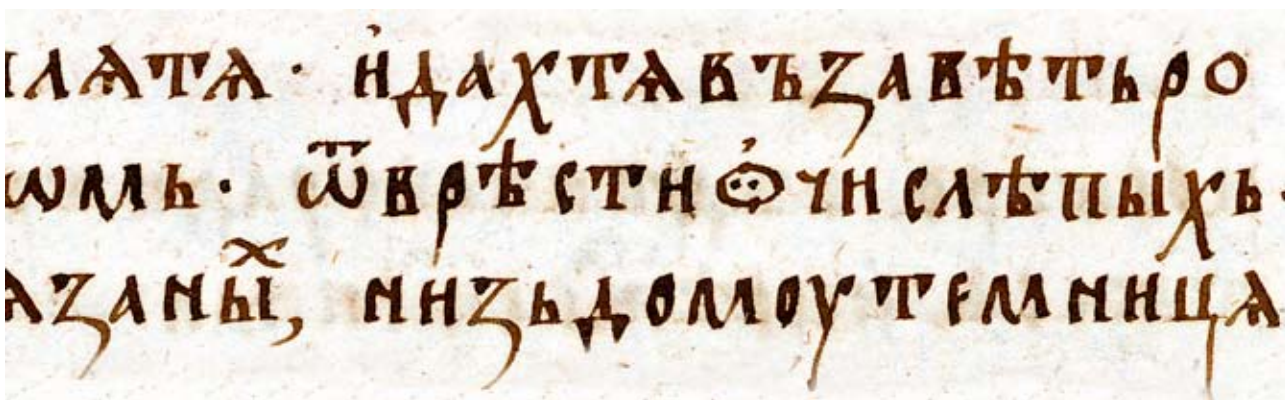 плѧтѧ · и҆дахтѧвъзавѣтьро
ѡмь · ѿврѣстиꙮ҆числѣпыхь ·
ѧзаныⷯ, низьдомоутемницѧ